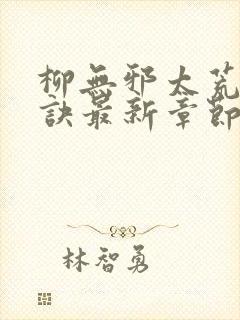 柳無邪太荒
訣最新章節
林智勇